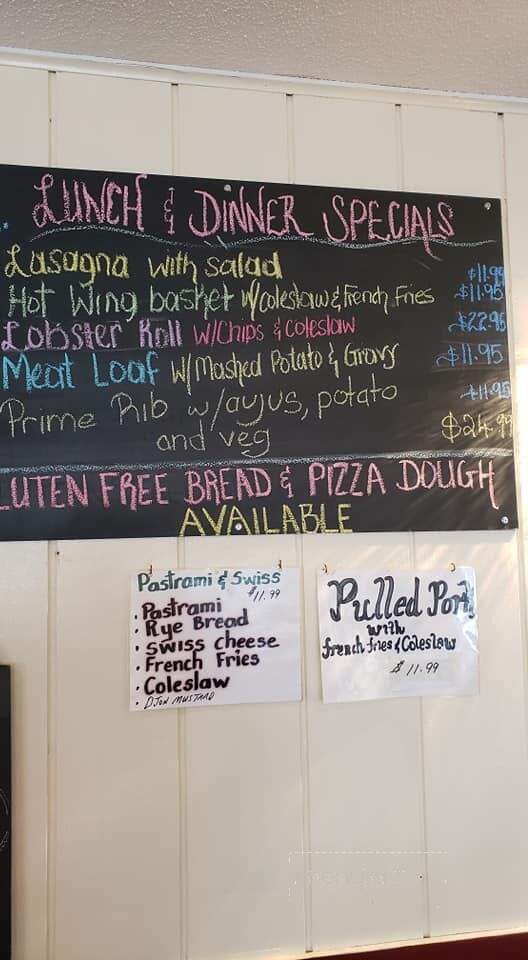 LUNCH & DINNER SPECIALS
Lasagna with salad $11.99
Hot Wing basket w/coleslaw & French Fries $11.95
Lobster Roll w/Chips & Coleslaw $22.95
Meat Loaf w/Mashed Potato & Gravy $11.95
Prime Rib w/aujus, potato $11.95
and veg $24.99
LUTEN FREE BREAD & PIZZA DOUGH
AVAILABLE
Pastrami & Swiss
$11.99
· Pastrami
· Rye Bread
· Swiss cheese
· French Fries
· Coleslaw
· DJON MUSTARD
Pulled Pork
with
french fries & Coleslaw
$11.99